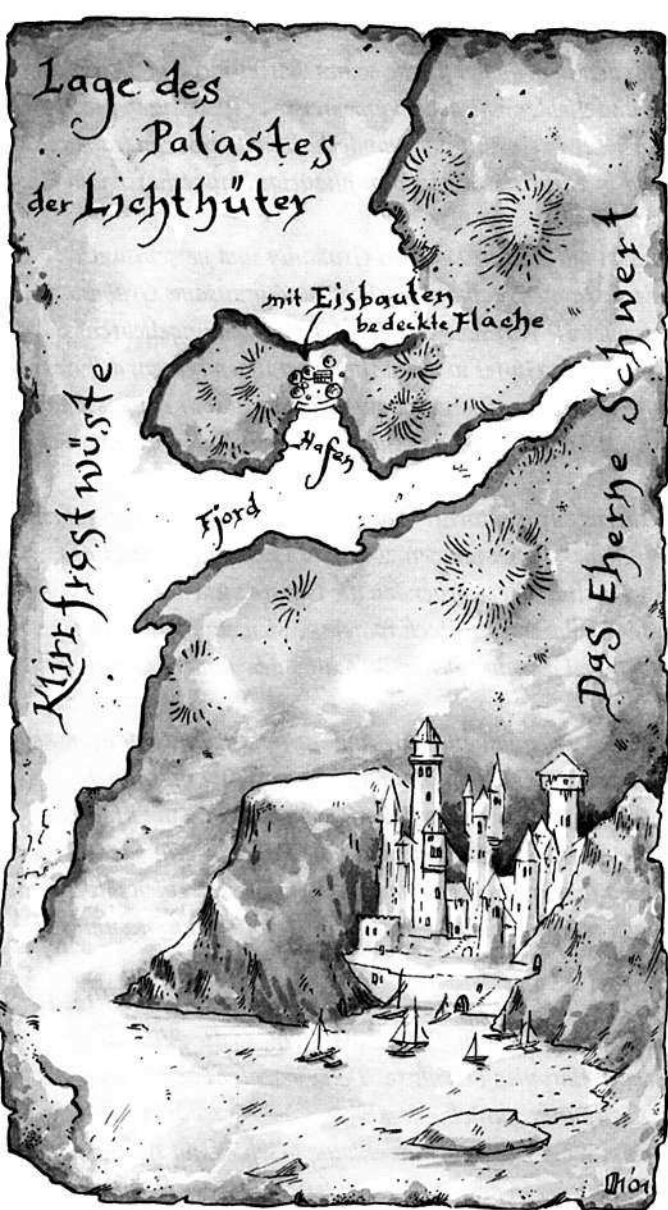 Lage des
Palastes
der Lichthüter
mit Eisbauten
bedeckte Fläche
Hafen
Fjord
Klirrfrostwüste
Das Eherne Schwert